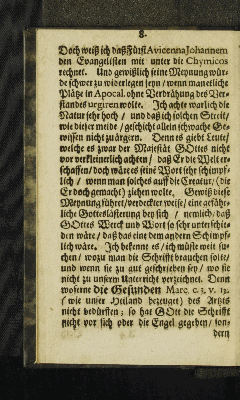 8.
Doch weiß ich daß Fürst Avicenna Johannem
den Evangelisten mit unter die Chymicos
rechnet. Und gewißlich seine Meynung wür-
de schwer zu widerlegen seyn / wenn man etliche
Plätze in Apocal. ohne Verdrähung des Ver-
standes urgiren wolte. Ich achte warlich die
Natur sehr hoch / und daß ich solchen Streit /
wie dieser meide / geschicht allein schwache Ge-
wissen nicht zu ärgern. Denn es giebt Leute /
welche es zwar der Majestät GOttes nicht
vor verkleinerlich achten / daß Er die Welt er-
schaffen / doch wäre es seine Wort sehr schimpf-
lich / wenn man solches auff die Creatur / (die
Er doch gemacht) ziehen wolte. Gewiß diese
Meynung führet / verdeckter weise / eine gefähr-
liche Gotteslästerung bey sich / nemlich / daß
GOttes Werck und Wort so sehr unterschie-
den wäre / daß das eine dem andern Schimpf-
lich wäre. Ich bekenne es / ich müste weit su-
chen / wozu man die Schrifft brauchen solte /
und wenn sie zu gut geschrieben sey / wo sie
nicht zu unserm Unterricht verzeichnet. Denn
woferne die Gesunden Marc. c. 3. v. 13.
(wie unser Heiland bezeuget) des Artzts
nicht bedürffen; so hat GOtt die Schrifft
nicht vor sich oder die Engel gegeben / son-
dern